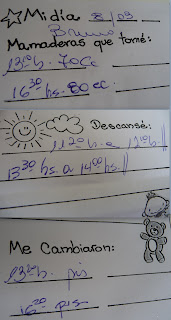 Mi día 8/03
Bruno
Mamaderas que tomé:
13:10 h. 70cc
16 30 hs. 80 cc.
Descansé:
11 20 h a 12 10 h
13 30 hs a 14 00 hs
Me Cambiaron:
13 20 h. pis
16 20 pis